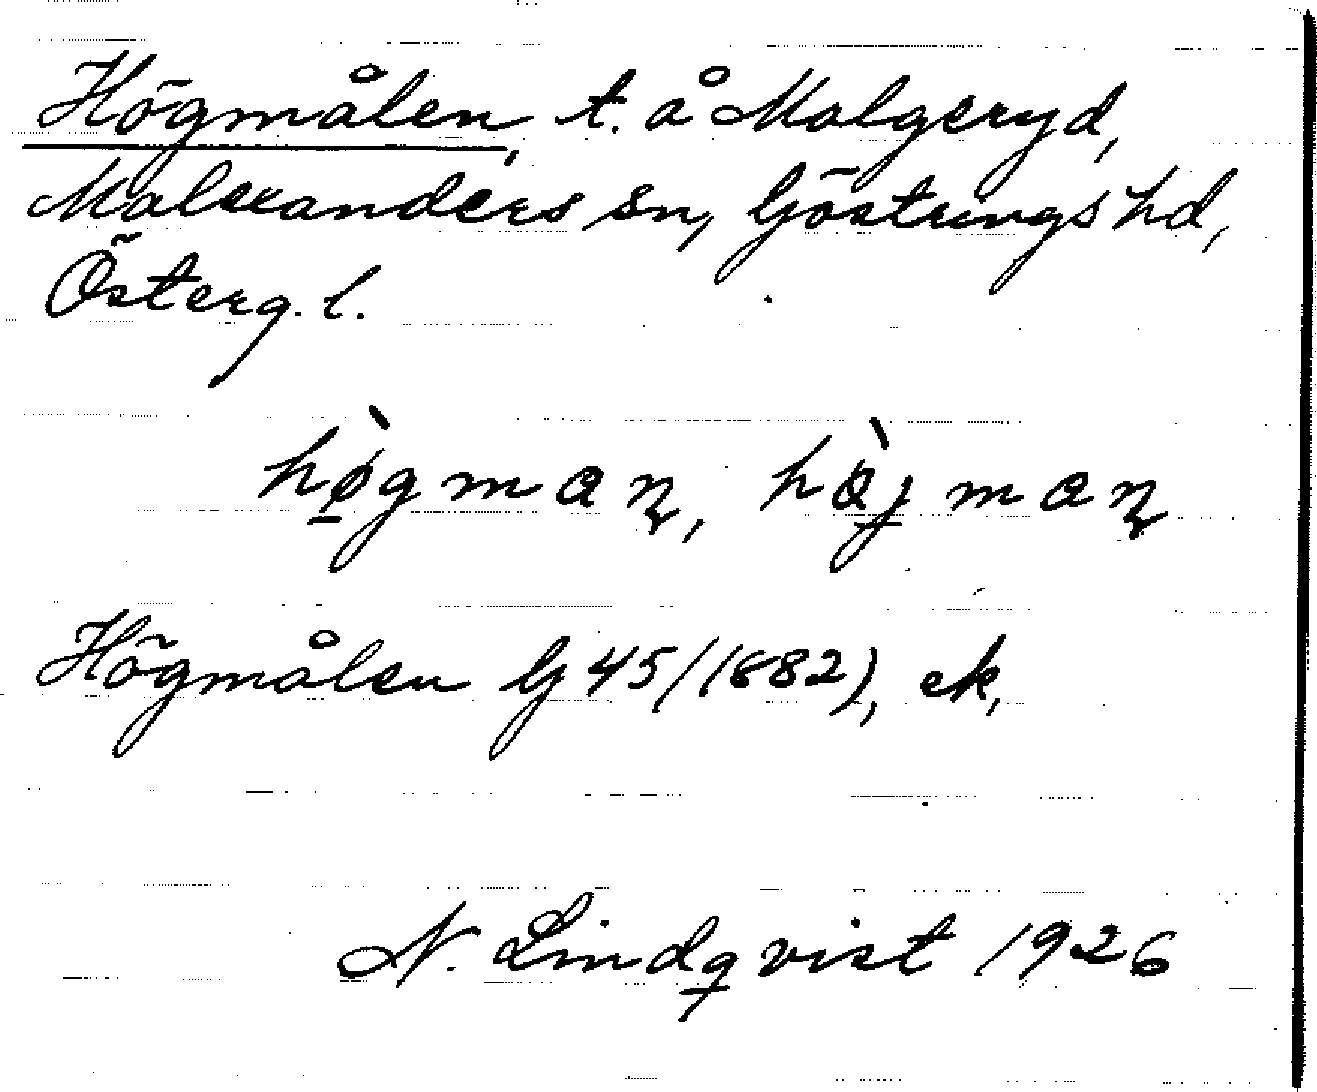 Högmålen, t. å Malgeryd,
Malexanders sn, Göstrings hd,
Österg. l.
hø̀gmaɳ, hàjmaɳ
Högmålen G 45/(1882), ek,
N. Lindqvist 1926